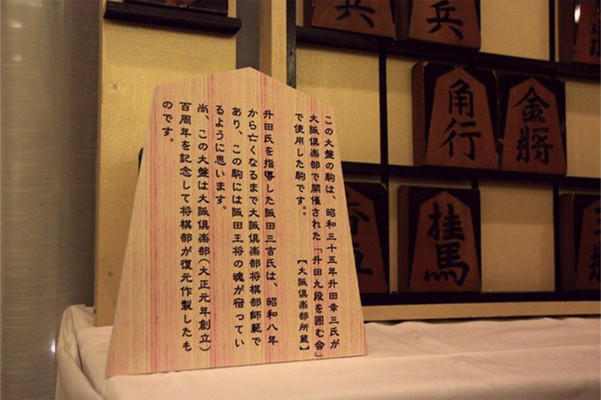 この大盤の駒は、昭和三十五年升田幸三氏が
大阪倶楽部で開催された「升田九段を囲む会」
で使用した駒です。
【大阪倶楽部所蔵】
升田氏を指導した阪田三吉氏は、昭和八年
から亡くなるまで大阪倶楽部将棋部師範で
あり、この駒には阪田王将の魂が宿ってい
るように思います。
尚、この大盤は大阪倶楽部(大正元年創立)
百周年を記念して将棋部が復元作製したも
のです。
兵
兵
角行
金将
桂馬